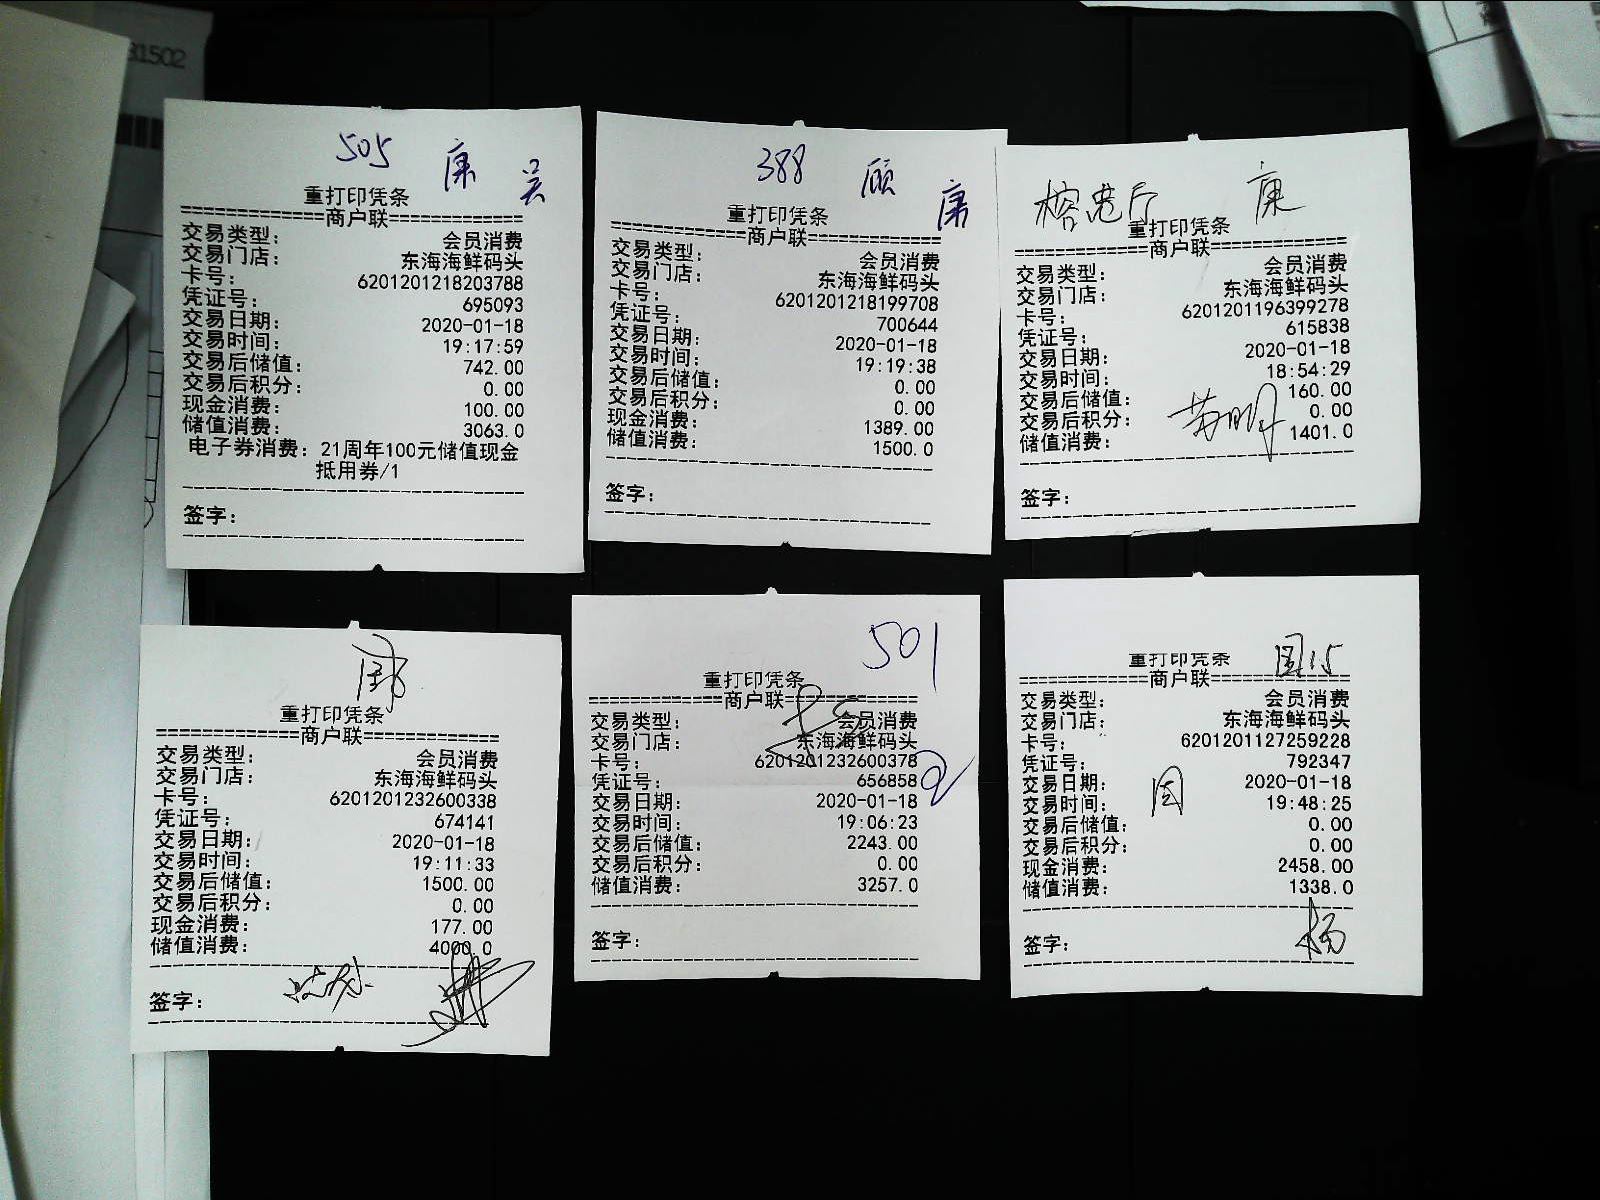 31502
505 康 吴
重打印凭条
=============商户联=============
交易类型: 会员消费
交易门店: 东海海鲜码头
卡号: 6201201218203788
凭证号: 695093
交易日期: 2020-01-18
交易时间: 19:17:59
交易后储值: 742.00
交易后积分: 0.00
现金消费: 100.00
储值消费: 3063.0
电子券消费: 21周年100元储值现金
抵用券/1
签字:
388 顾 康
重打印凭条
=============商户联=============
交易类型: 会员消费
交易门店: 东海海鲜码头
卡号: 6201201218199708
凭证号: 700644
交易日期: 2020-01-18
交易时间: 19:19:38
交易后储值: 0.00
交易后积分: 0.00
现金消费: 1389.00
储值消费: 1500.0
签字:
康
重打印凭条
=============商户联=============
交易类型: 会员消费
交易门店: 东海海鲜码头
卡号: 6201201196399278
凭证号: 615838
交易日期: 2020-01-18
交易时间: 18:54:29
交易后储值: 160.00
交易后积分: 0.00
储值消费: 1401.0
签字:
重打印凭条
=============商户联=============
交易类型: 会员消费
交易门店: 东海海鲜码头
卡号: 6201201232600338
凭证号: 674141
交易日期: 2020-01-18
交易时间: 19:11:33
交易后储值: 1500.00
交易后积分: 0.00
现金消费: 177.00
储值消费: 4000.0
签字:
501
重打印凭条
=============商户联=============
交易类型: 会员消费
交易门店: 东海海鲜码头
卡号: 6201201232600378
凭证号: 656858
交易日期: 2020-01-18
交易时间: 19:06:23
交易后储值: 2243.00
交易后积分: 0.00
储值消费: 3257.0
签字:
重打印凭条
=============商户联=============
交易类型: 会员消费
交易门店: 东海海鲜码头
卡号: 6201201127259228
凭证号: 792347
交易日期: 2020-01-18
交易时间: 19:48:25
交易后储值: 0.00
交易后积分: 0.00
现金消费: 2458.00
储值消费: 1338.0
签字: 杨